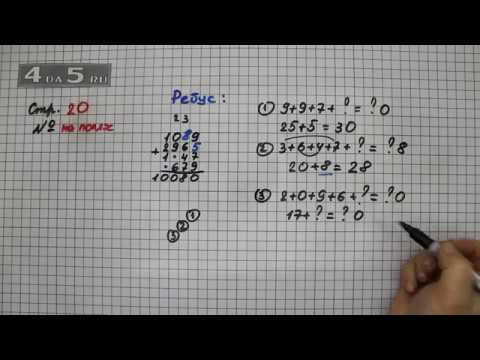 4 DA 5 RU
Стр. 20
№ на полях
Ребус:
2 3
1089
+ 2965
1·47
·679
10080
①
②
③
① 9+9+7+?=?0
25+5=30
② 3+6+4+7+?=?8
20+8=28
③ 2+0+9+6+?=?0
17+?=?0